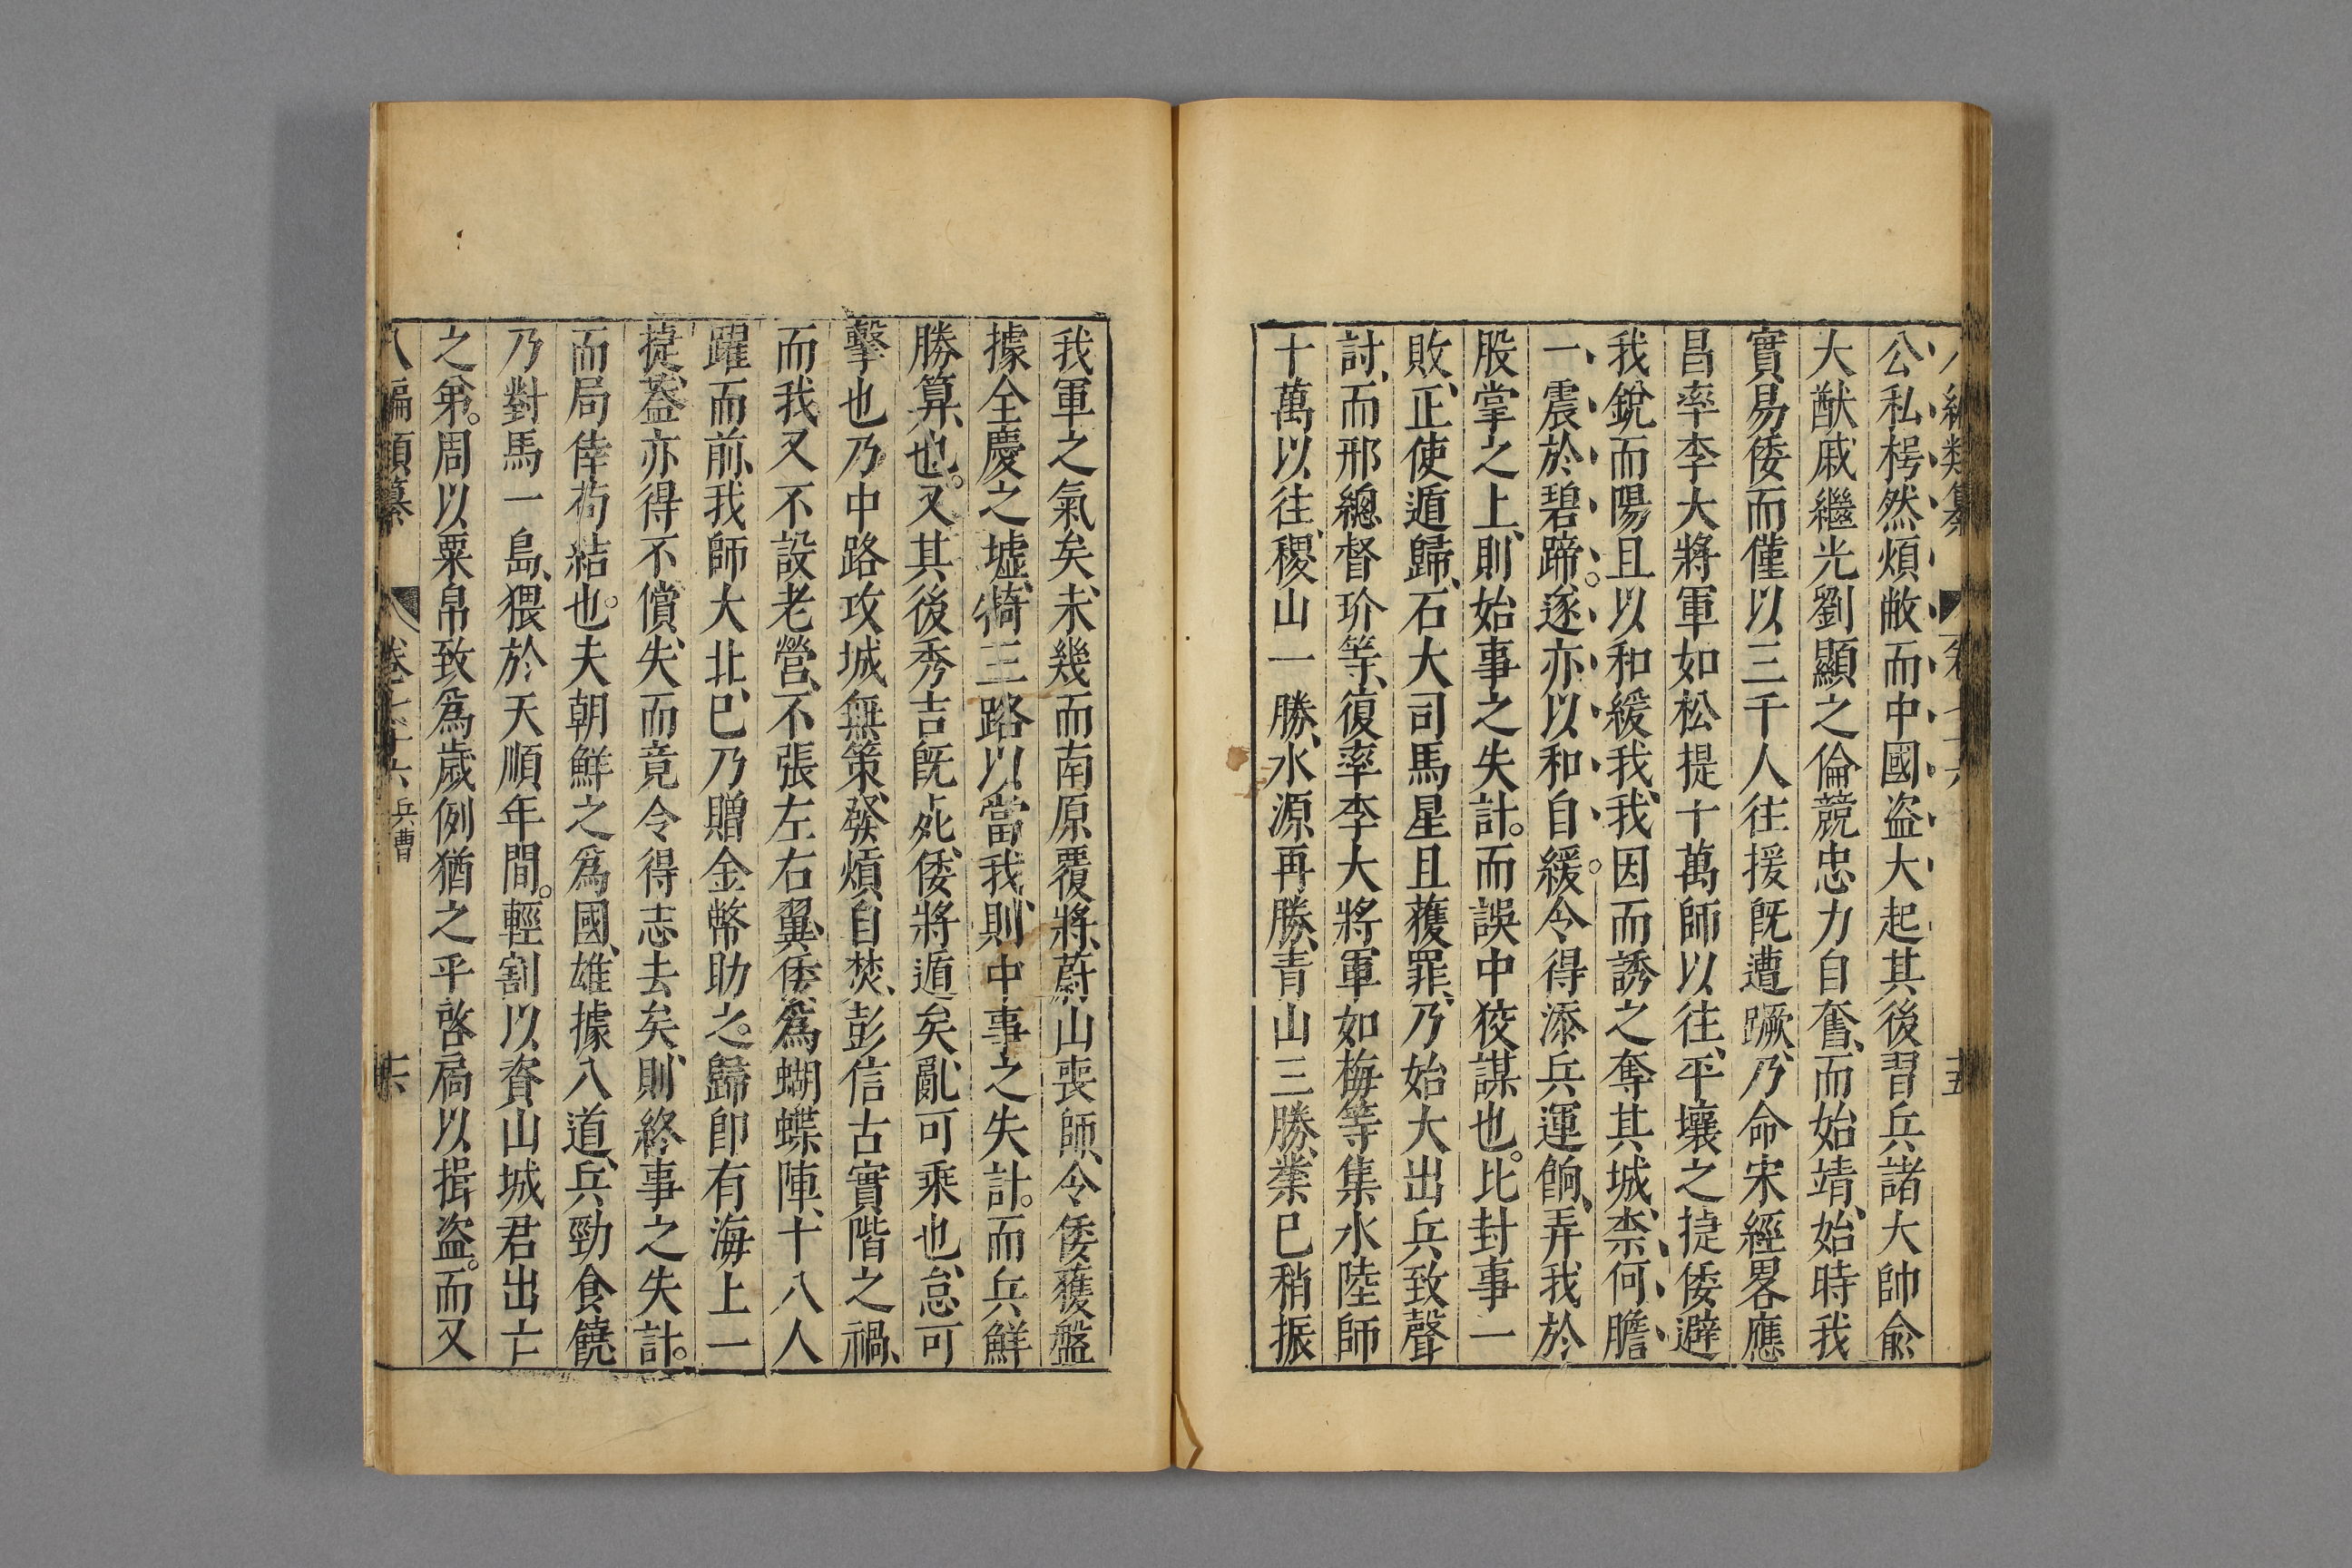 公私楞然煩敝而中國盗大起其後習兵諸大帥俞
大猷戚繼光劉顯之倫競忠力自奮、而始靖、始時我
實易倭而僅以三千人往援旣遭蹶、乃命宋經畧應
昌率李大將軍如松提十萬師以往、平壤之捷倭避
我銳而陽且以和緩我、我因而誘之奪其城、柰何膽
一震於碧蹄。遂亦以和自緩。令得添兵運餉、弄我於
股掌之上、則始事之失計。而誤中狡謀也。比封事一
敗、正使遁歸、石大司馬星且獲罪、乃始大出兵致聲
討、而邢總督玠等、復率李大將軍如梅等集水陸師
十萬以往、稷山一勝、水源再勝、青山三勝、業已稍振
我軍之氣矣、未幾而南原覆將、蔚山喪師、令倭獲盤
據全慶之墟、犄三路以當我、則中事之失計。而兵鮮
勝算也。又其後秀吉旣死、倭將遁矣、亂可乘也、怠可
擊也乃中路攻城無策、發煩自焚、彭信古實階之禍、
而我又不設老營、不張左右翼、倭爲蝴蝶陣、十八人
躍而前、我師大北、巳乃贈金幣助之。歸卽有海上一
捷、葢亦得不償失、而竟令得志去矣、則終事之失計。
而局倖茍結也。夫朝鮮之爲國、雄據八道、兵勁食饒
乃對馬一島、猥於天順年間。輕割以資山城君出亡
之弟。周以粟帛致爲歲例猶之乎啓扃以揖盗。而又
八編類纂 卷七十六 兵曹 六